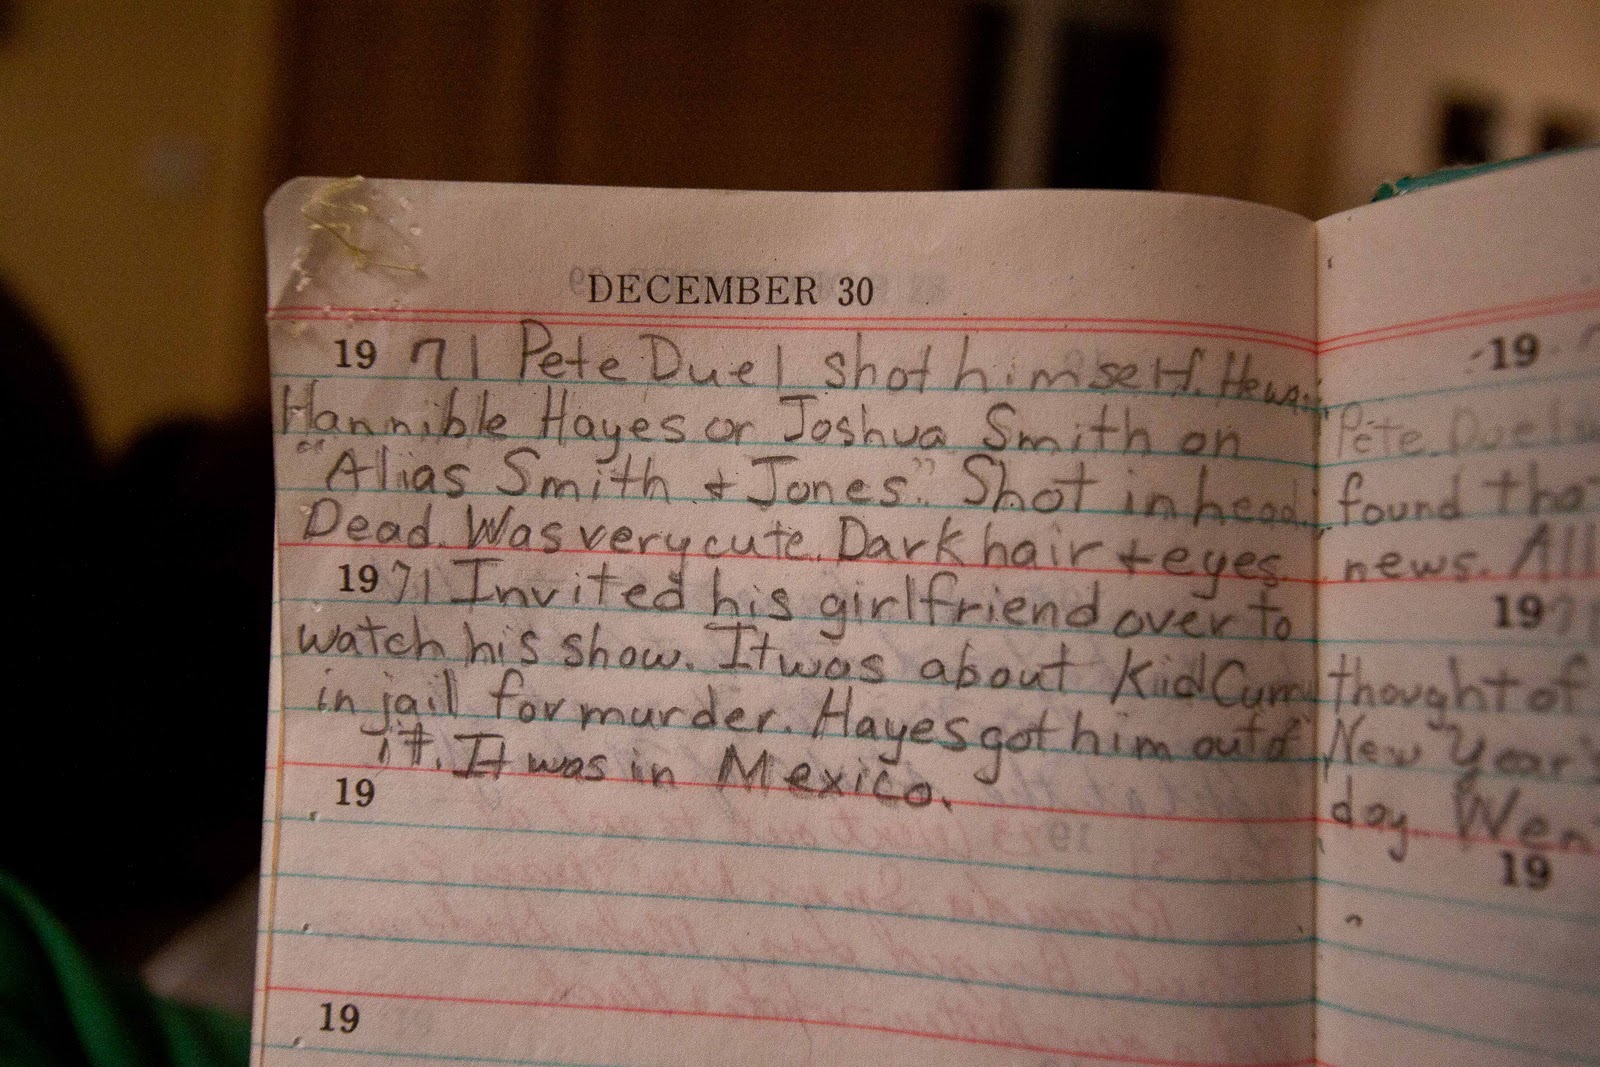 DECEMBER 30
19 71 Pete Duel shot himself. He was
Hannible Hayes or Joshua Smith on
"Alias Smith + Jones". Shot in head.
Dead. Was very cute. Dark hair + eyes
19 71 Invited his girlfriend over to
watch his show. It was about Kid Curry
in jail for murder. Hayes got him out of
it. It was in Mexico.
19
19
19
Pete Duel
found that
news. All
19
thought of
New Year's
day. Went
19